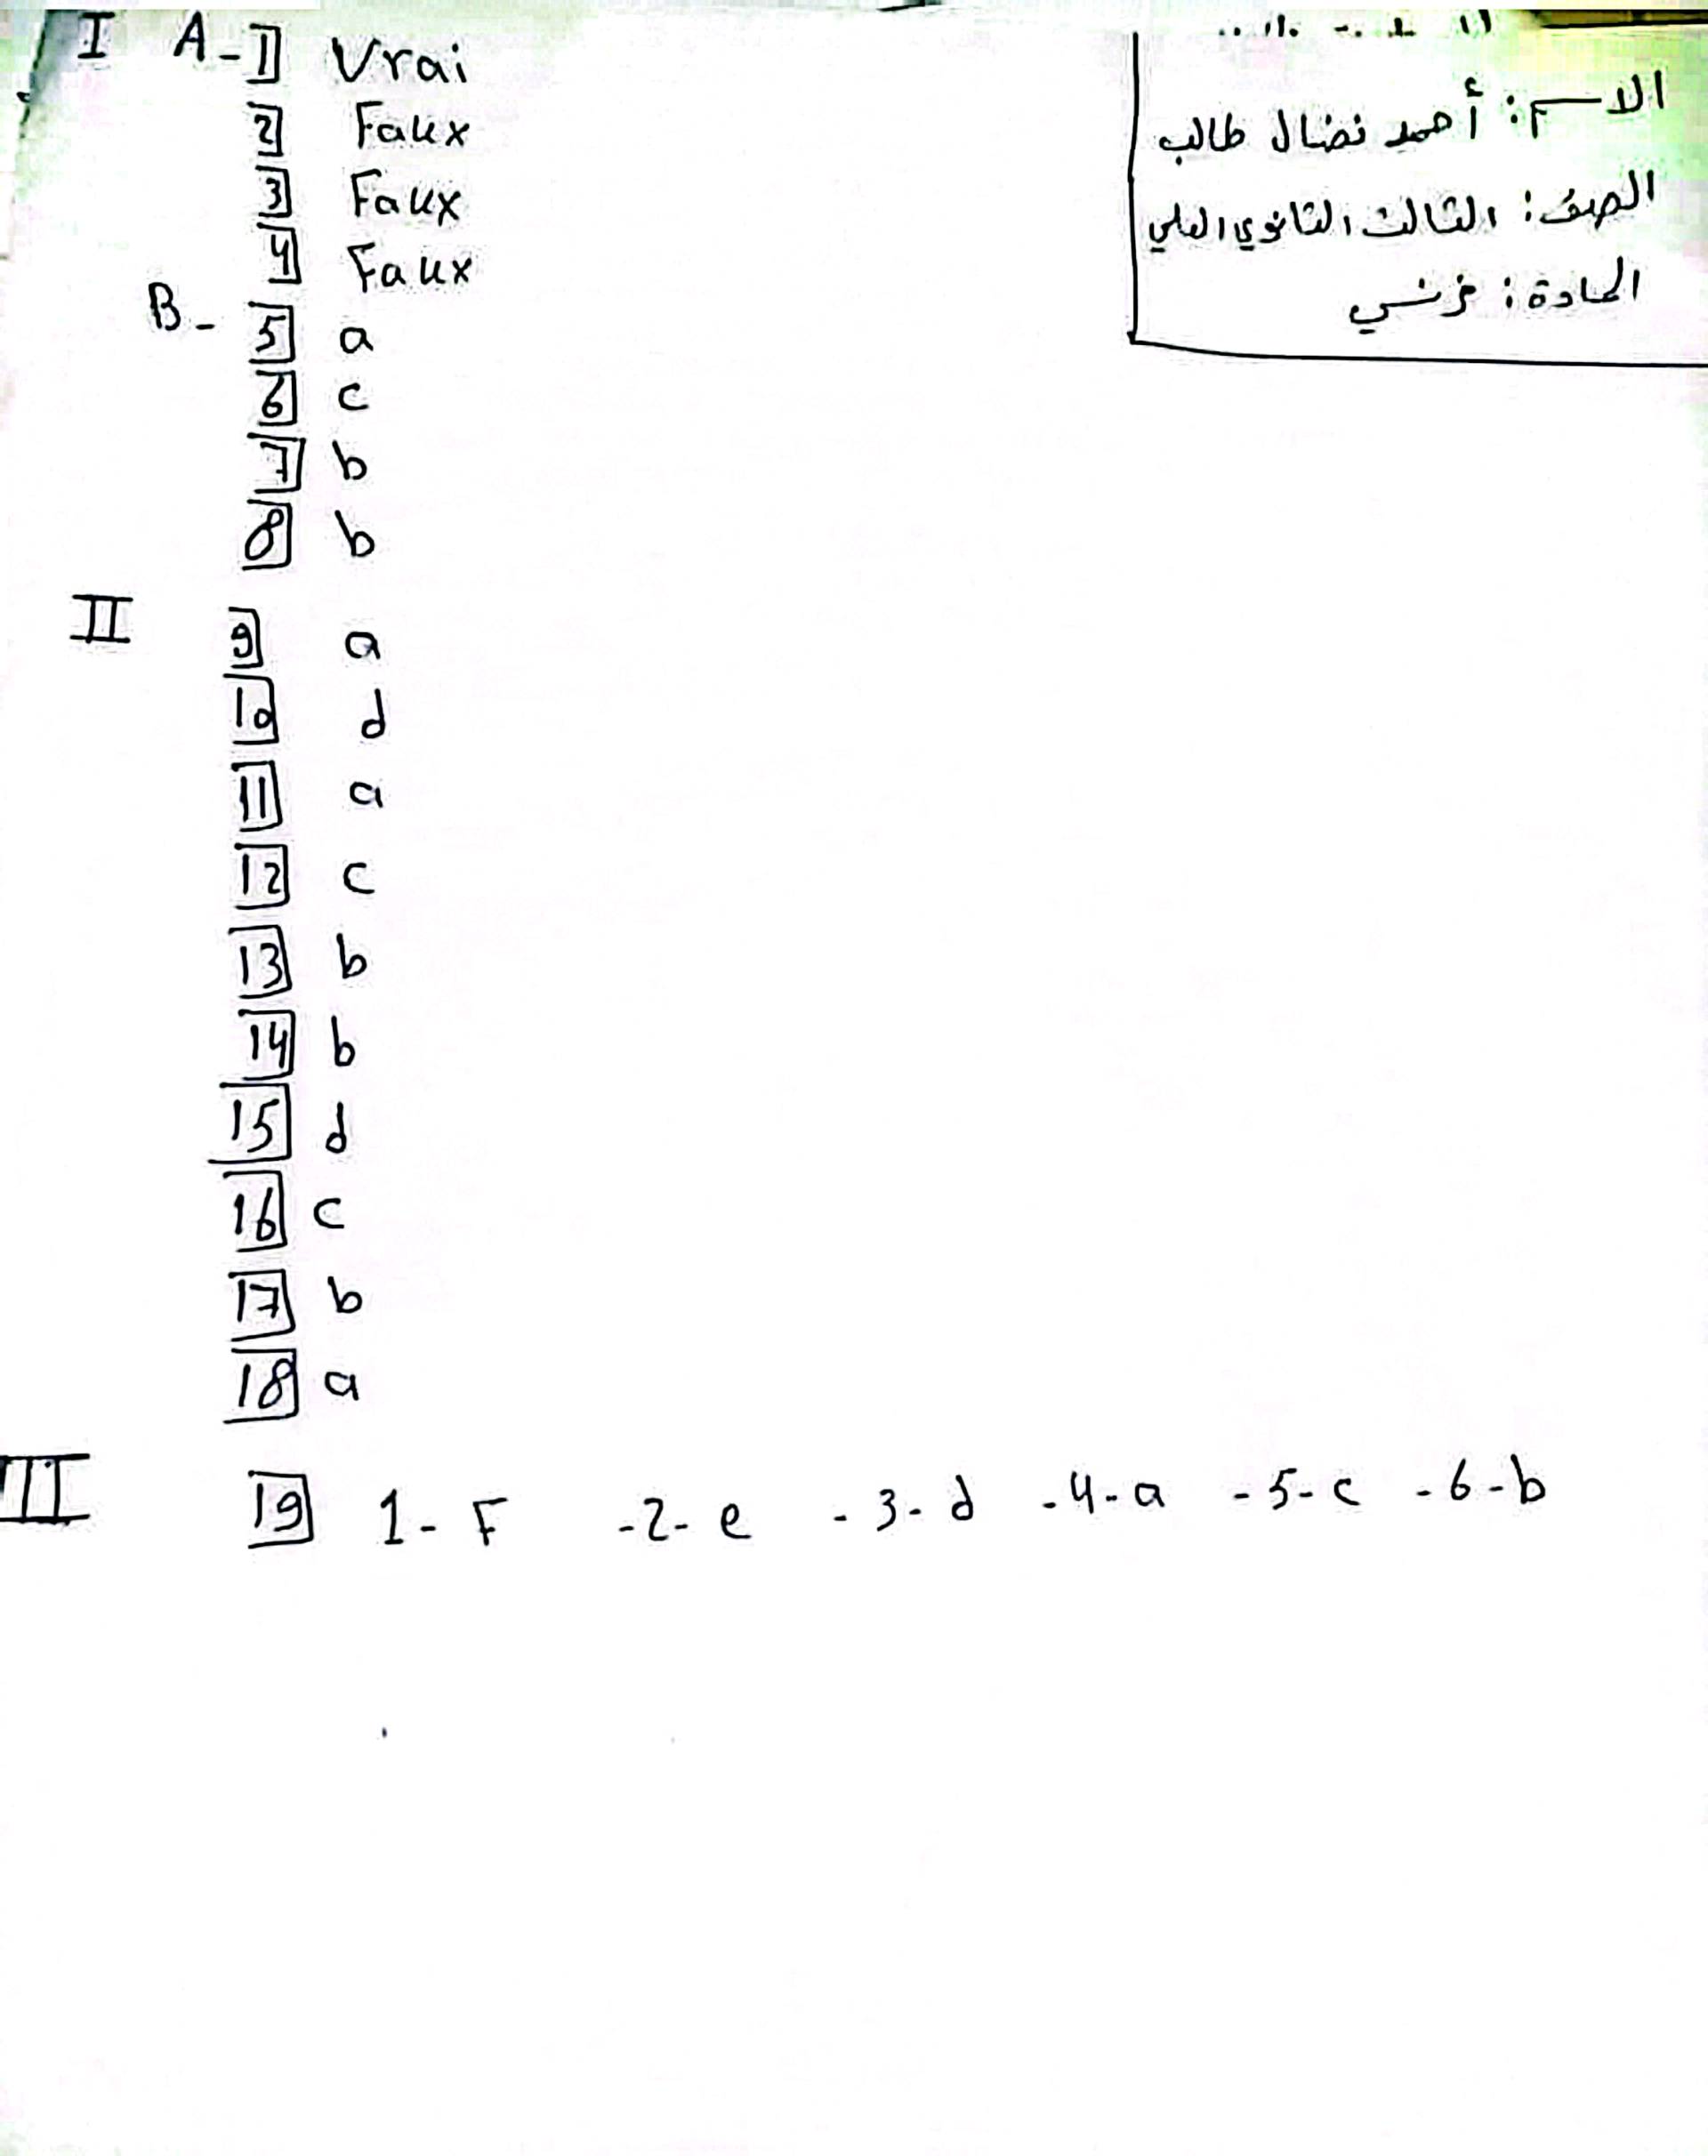 I A-1 Vrai
2 Faux
3 Faux
4 Faux
B- 5 a
6 c
7 b
8 b
الاسم: أحمد نضال طالب
الصف: الثالث الثانوي العلمي
المادة: فرنسي
II 9 a
10 d
11 a
12 c
13 b
14 b
15 d
16 c
17 b
18 a
III 19 1- F -2- e -3- d -4- a -5- c -6- b